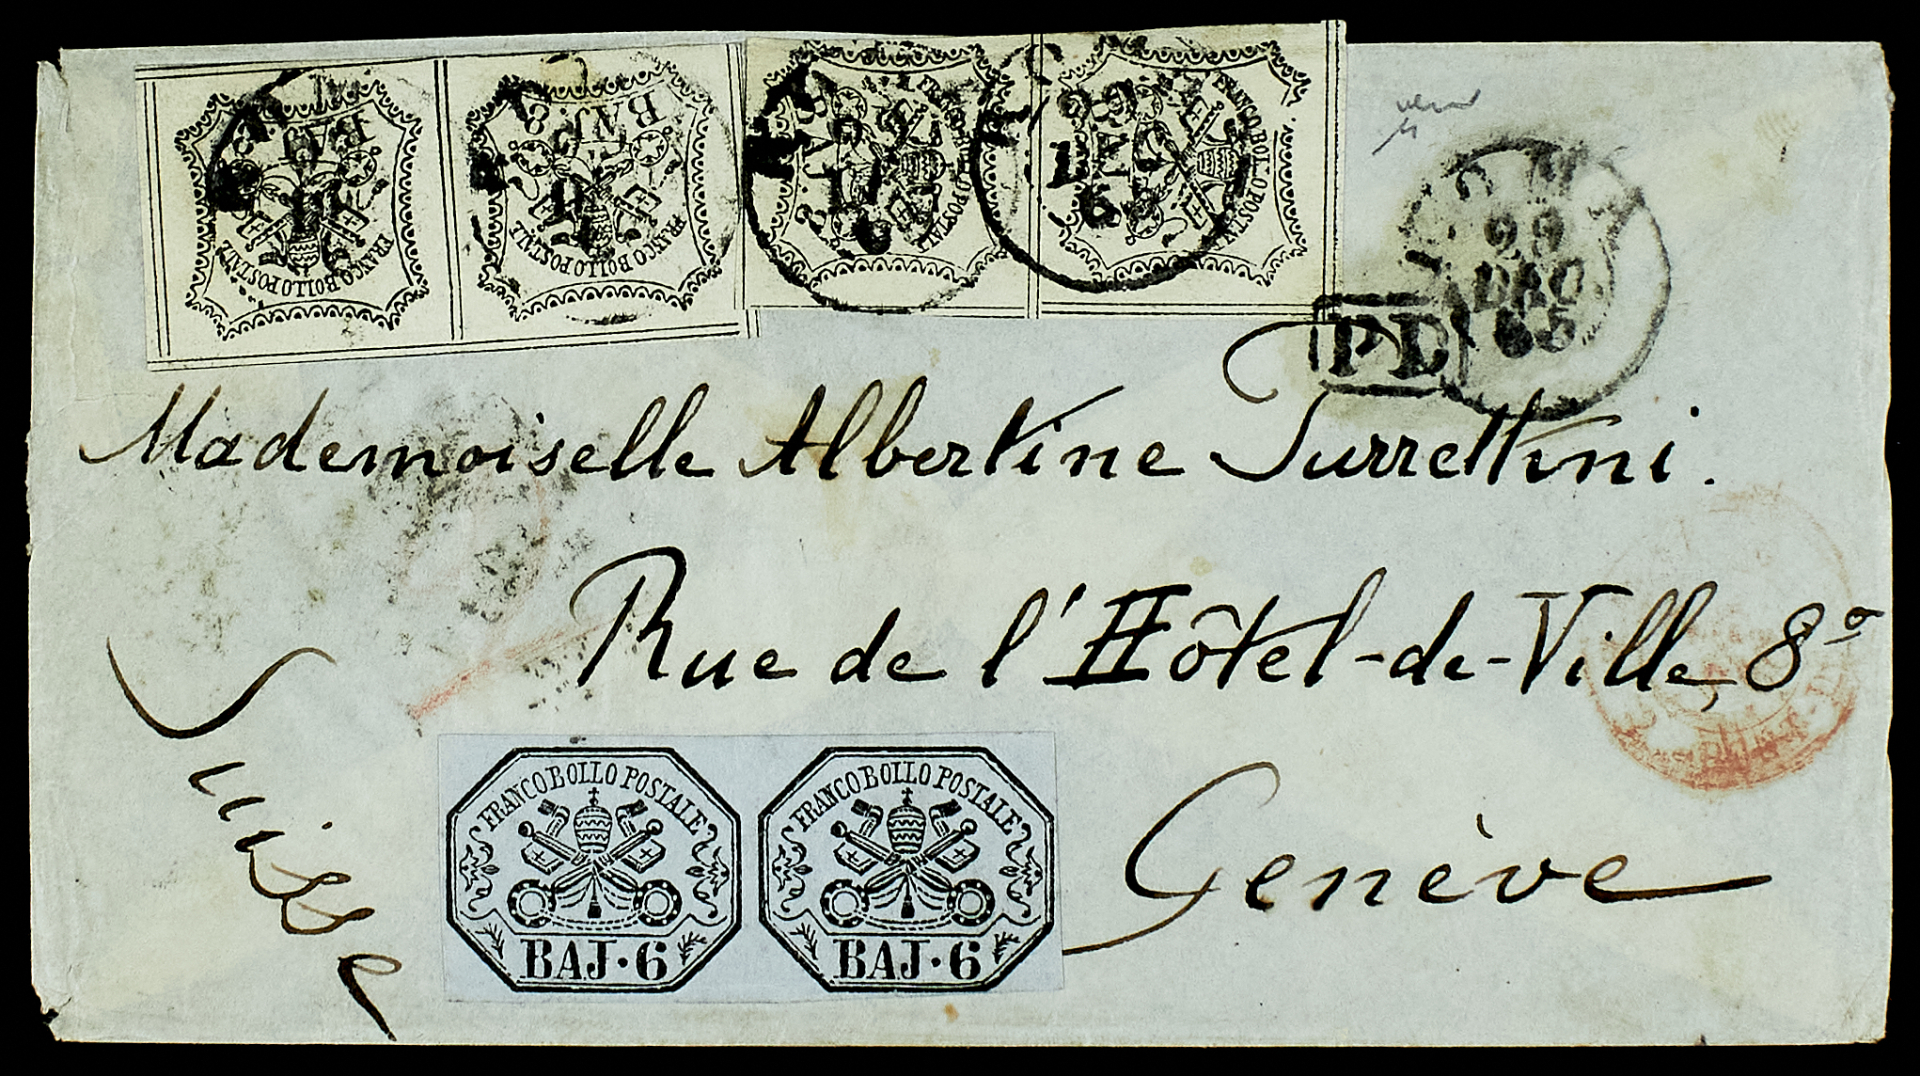 BAJ. 8
FRANCO BOLLO POSTALE
BAJ. 8
FRANCO BOLLO POSTALE
BAJ. 8
FRANCO BOLLO POSTALE
FRANCO BOLLO POSTALE
ROMA
DEC
65
P.D.
Mademoiselle Albertine Turrettini.
Rue de l'Hôtel-de-Ville, 8º
Genève
Suisse
FRANCO BOLLO POSTALE
BAJ·6
FRANCO BOLLO POSTALE
BAJ·6